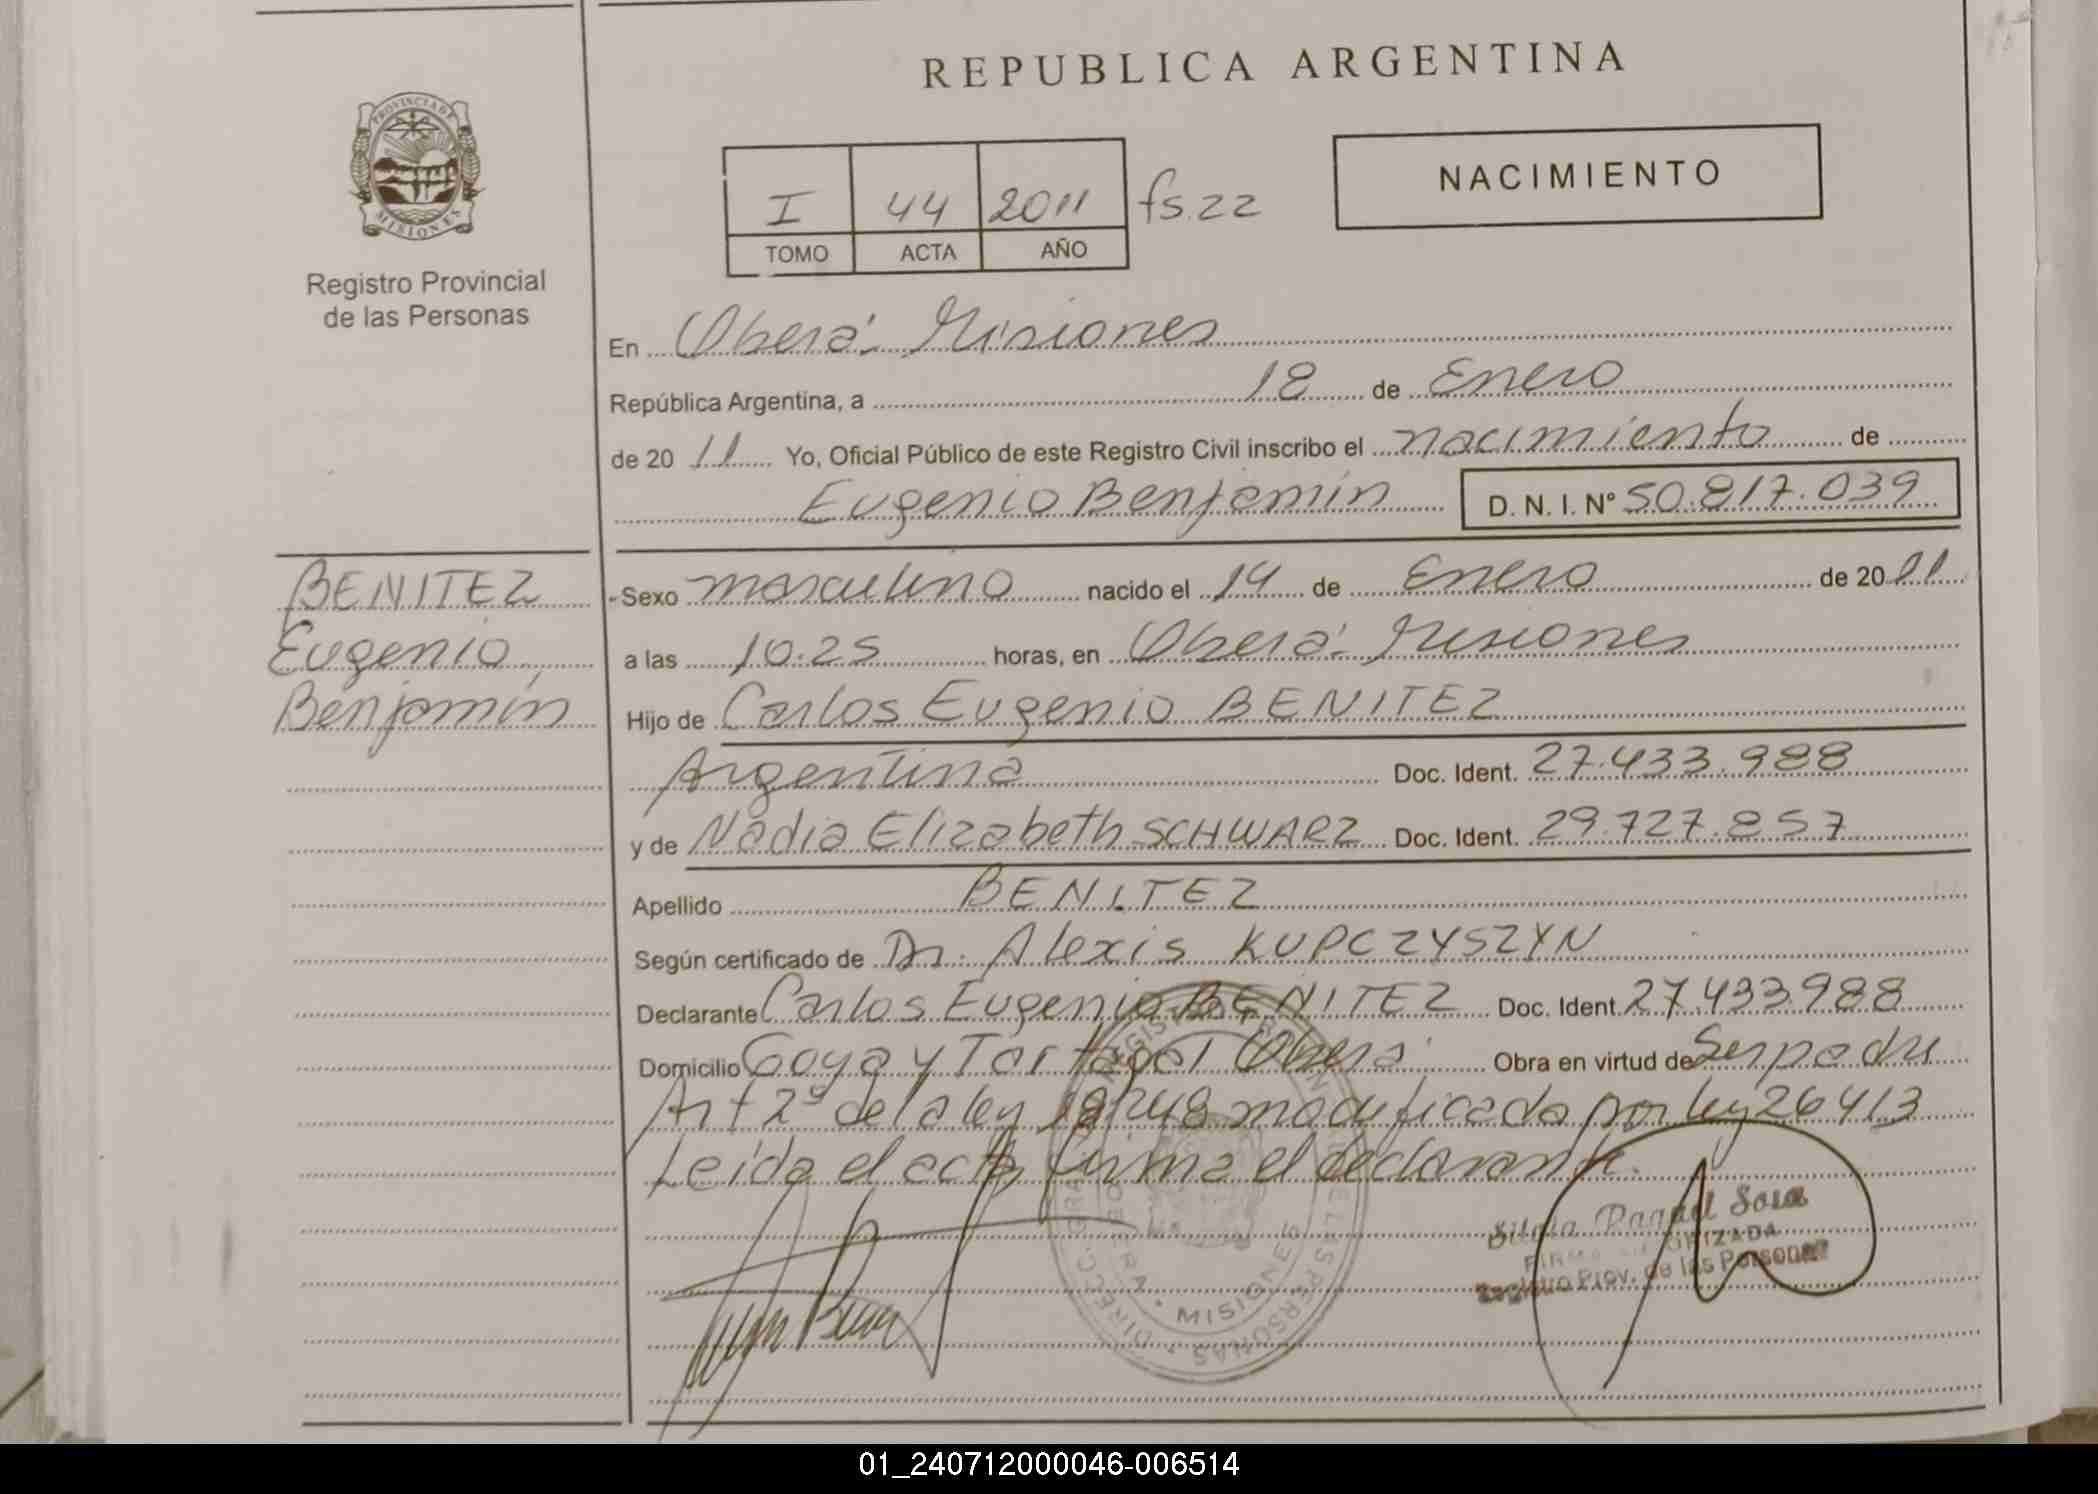 REPUBLICA ARGENTINA
PROVINCIA DE
MISIONES
Registro Provincial
de las Personas
I 44 2011 fs. 22
TOMO ACTA AÑO
NACIMIENTO
En Oberá - Misiones
República Argentina, a 18 de Enero
de 2011 Yo, Oficial Público de este Registro Civil inscribo el nacimiento de
Eugenio Benjamín D. N. I. Nº 50.817.039
BENITEZ
Eugenio
Benjamín
Sexo masculino nacido el 14 de Enero de 2011
a las 10.25 horas, en Oberá - Misiones
Hijo de Carlos Eugenio BENITEZ
Argentina Doc. Ident. 27.433.988
y de Nadia Elizabeth SCHWARZ Doc. Ident. 29.727.857
Apellido BENITEZ
Según certificado de Dr. Alexis KUPCZYSZYN
Declarante Carlos Eugenio BENITEZ Doc. Ident. 27.433.988
Domicilio Goya y Tartagal Oberá Obra en virtud de Ser padre
Art 2º de la ley 18248 modificada por ley 26413
Leída el acta firma el declarante.
Raquel Sosa
FIRMA AUTORIZADA
Registro Prov. de las Personas
MISIONES
01_240712000046-006514